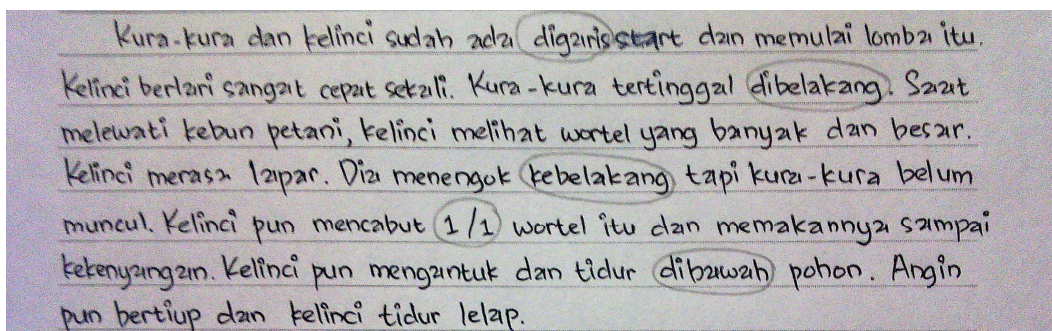 Kura-kura dan kelinci sudah ada digaris start dan memulai lomba itu.
Kelinci berlari sangat cepat sekali. Kura-kura tertinggal dibelakang. Saat
melewati kebun petani, kelinci melihat wortel yang banyak dan besar.
Kelinci merasa lapar. Dia menengok kebelakang tapi kura-kura belum
muncul. Kelinci pun mencabut 1/1 wortel itu dan memakannya sampai
kekenyangan. Kelinci pun mengantuk dan tidur dibawah pohon. Angin
pun bertiup dan kelinci tidur lelap.